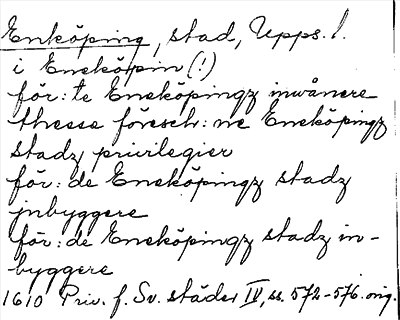 Enköping, stad, Upps. l.
i Eneköpin (!)
för:te Eneköpingz inwånere
thesse föresch:ne Eneköpingz
stadz privilegier
för:de Eneköpingz stadz
jnbyggere
för:de Eneköpingz stadz in-
byggere
1610 Priv. f. Sv. städer IV, ss. 572-576. orig.